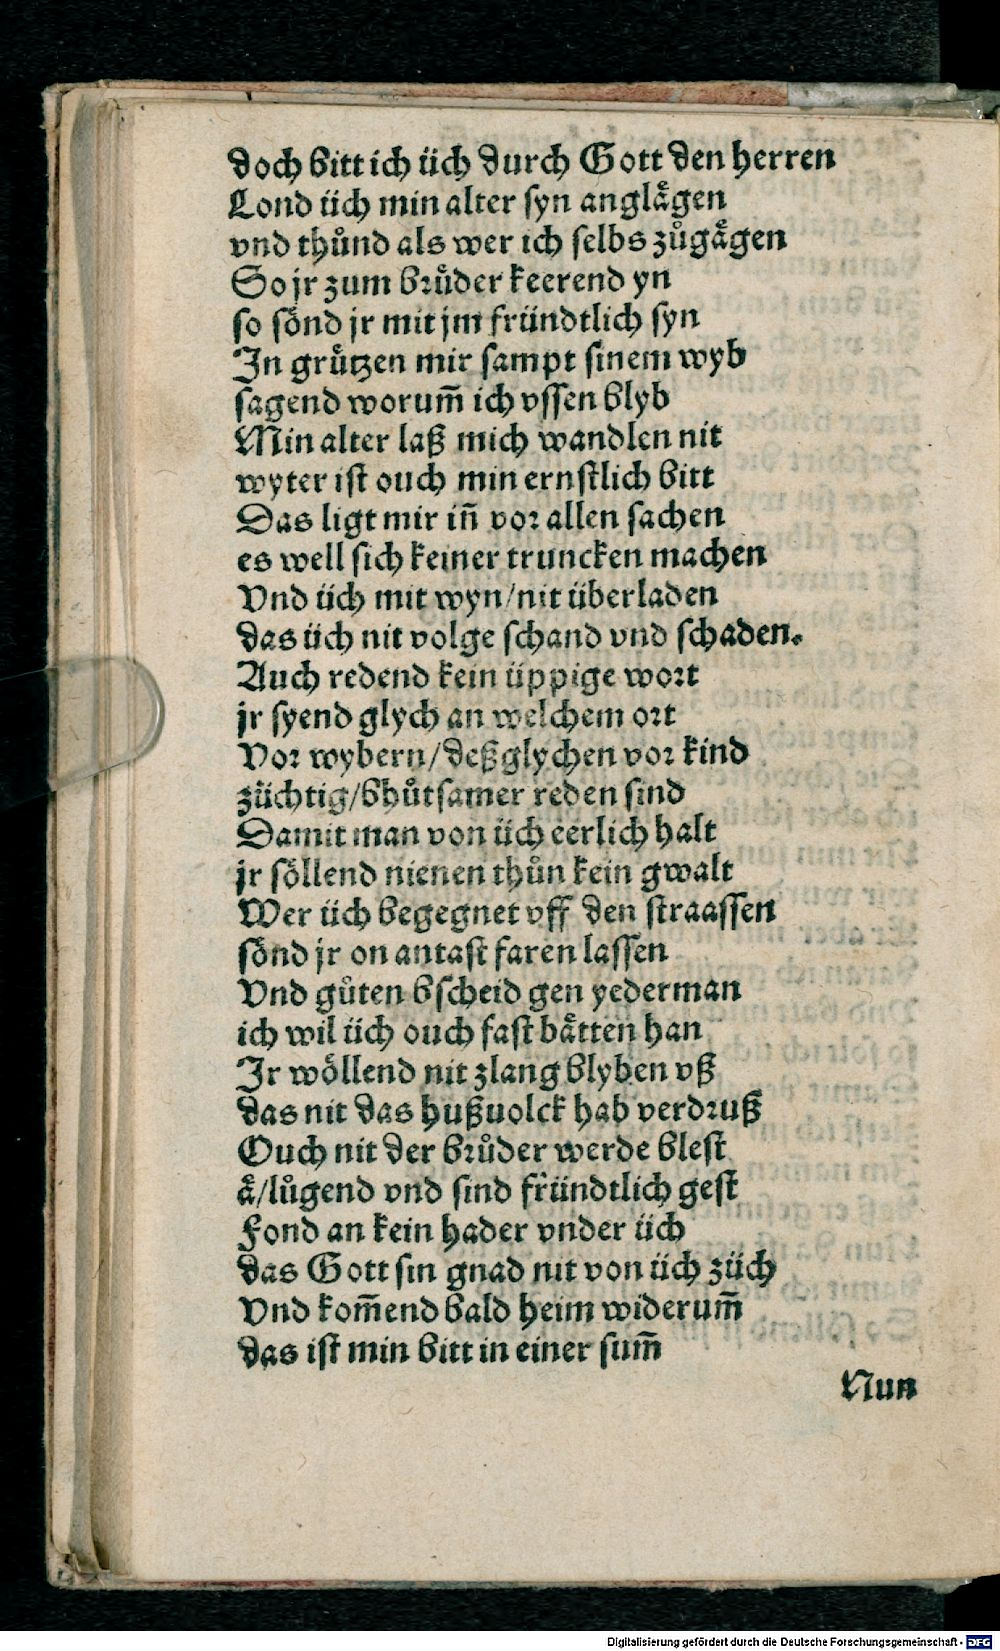 doch bitt ich üch durch Gott den herren
Lond üch min alter syn anglaͤgen
vnd thuͦnd als wer ich selbs zuͦgaͤgen
So jr zum bruͦder keerend yn
so soͤnd jr mit jm fründtlich syn
In gruͤtzen mir sampt sinem wyb
sagend worum̄ ich vssen blyb
Min alter laß mich wandlen nit
wyter ist ouch min ernstlich bitt
Das ligt mir in̄ vor allen sachen
es well sich keiner truncken machen
Vnd üch mit wyn/nit überladen
das üch nit volge schand vnd schaden.
Auch redend kein üppige wort
jr syend glych an welchem ort
Vor wybern/deßglychen vor kind
züchtig/bhuͦtsamer reden sind
Damit man von üch eerlich halt
jr soͤllend nienen thuͦn kein gwalt
Wer üch begegnet vff den straassen
soͤnd jr on antast faren lassen
Vnd guͦten bscheid gen yederman
ich wil üch ouch fast baͤtten han
Ir woͤllend nit zlang blyben vß
das nit das hußuolck hab verdruß
Ouch nit der bruͦder werde blest
aͤ/luͦgend vnd sind fründtlich gest
Fond an kein hader vnder üch
das Gott sin gnad nit von üch züch
Vnd kom̄end bald heim widerum̄
das ist min bitt in einer sum̄
Nun
Digitalisierung gefördert durch die Deutsche Forschungsgemeinschaft - DFG